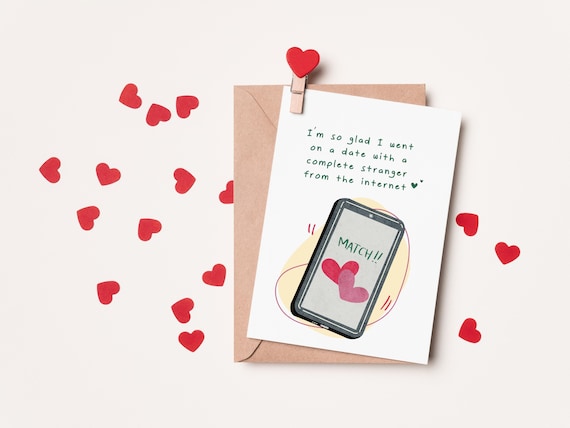 I'm so glad I went
on a date with a
complete stranger
from the internet
MATCH!!